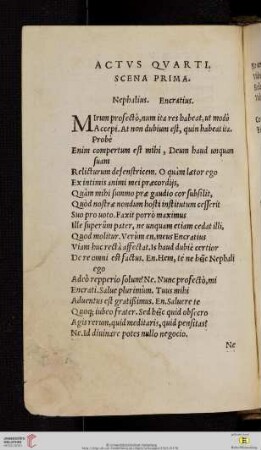 ACTVS QVARTI,
SCENA PRIMA.
Nephalius. Encratius.
MIrum profectò, num ita res habeat, ut modò
Accepi. At non dubium est, quin habeat ita.
Probè
Enim compertum est mihi, Deum haud unquam
suam
Relicturum defenstricem. O quàm lætor ego
Ex intimis animi mei præcordijs,
Quàm mihi summo præ gaudio cor subsilit,
Quòd nostræ nondum hosti institutum cesserit
Suo pro uoto. Faxit porrò maximus
Ille superûm pater, ne unquam etiam cedat illi,
Quod molitur. Verùm en, meus Encratius
Viam huc rectà affectat. Is haud dubiè certior
De re omni est factus. En. Hem, té ne hîc Nephali
ego
Adeò repperio solum? Ne. Nunc profectò, mi
Encrati. Salue plurimùm. Tuus mihi
Aduentus est gratissimus. En. Saluere te
Quoq; iubeo frater. Sed hîc quid obsecro
Agis rerum, quid meditaris, quid pensitas?
Ne. Id diuinare potes nullo negocio.
Ne